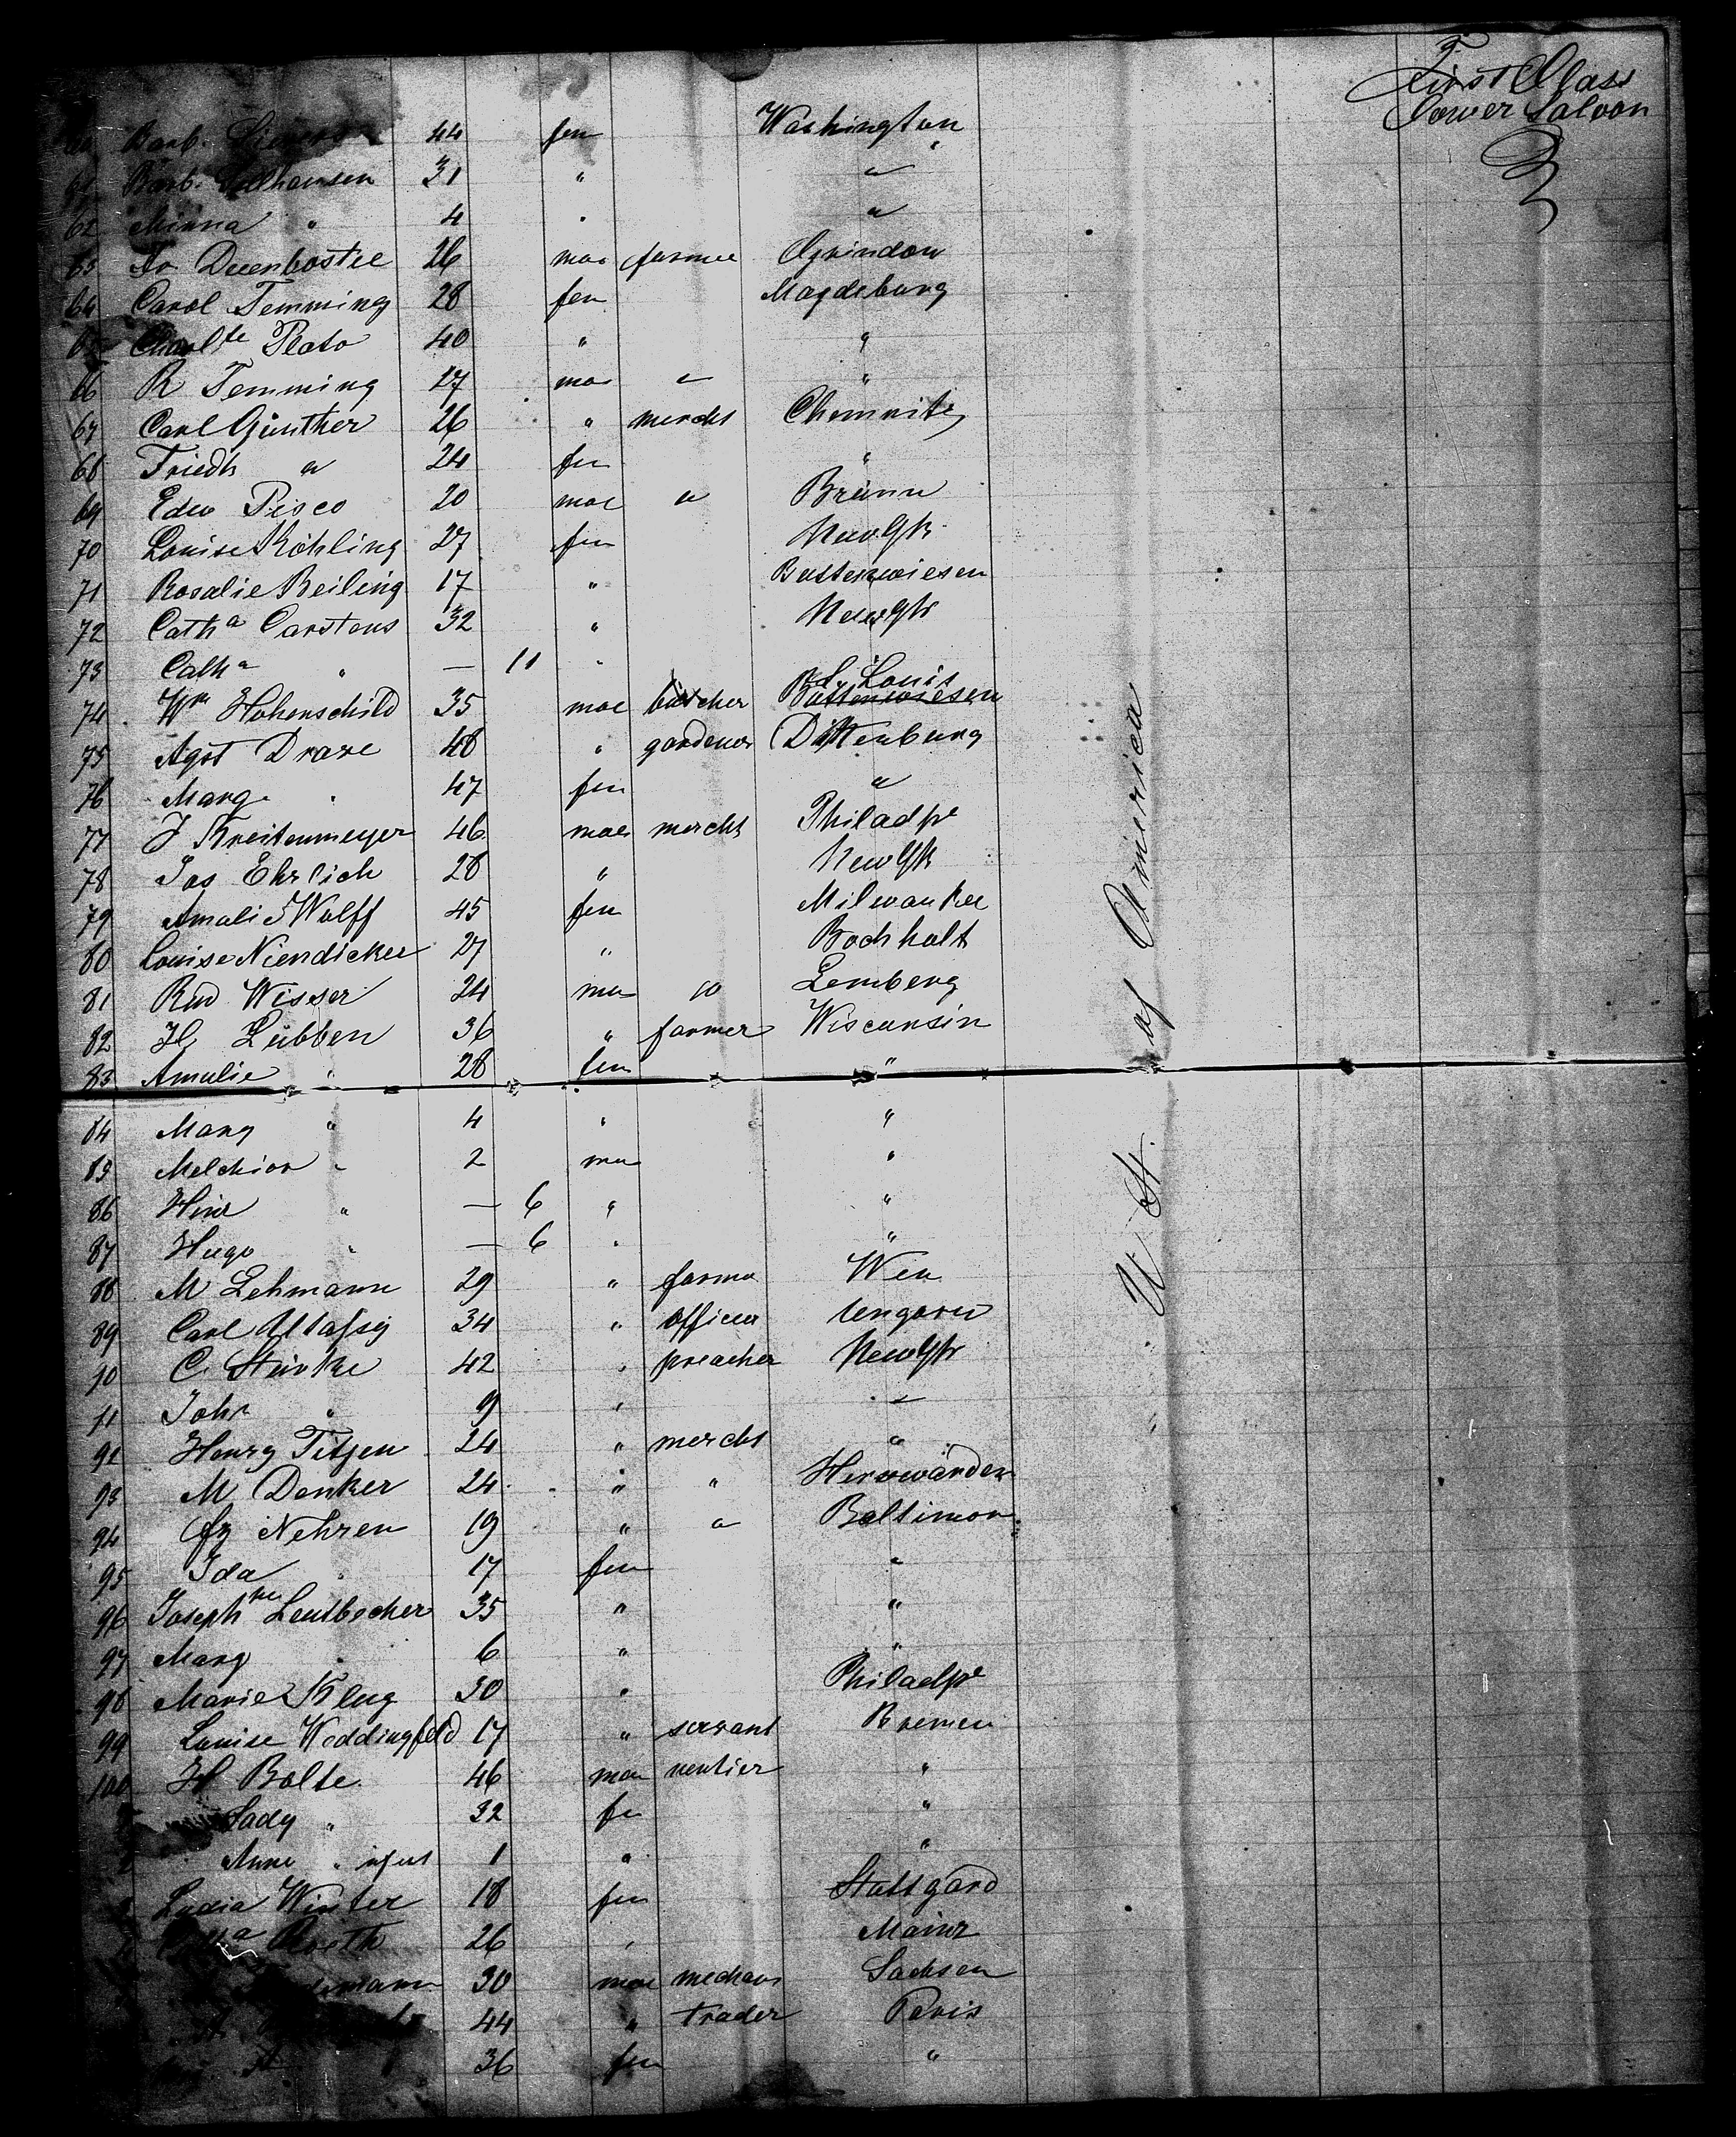 First Class
Lower Saloon
60 Barb. 44 fem Washington
61 Barb. 31 " "
62 Minna " 4 " "
63 26 mae farmer
64 Carol Temming 28 fem Magdeburg
65 Charlte Plato 40 " "
66 R Temming 27 mae " "
67 Carl Günther 26 " mercht Chemnitz
68 Friedh " 24 fem "
69 Edw Pisco 20 mae " Brünn
70 Louise Köhling 27 fem NewYk
71 Rosalie Beiling 17 " Buttenwiesen
72 Catha Carstens 32 " NewYk
73 Catha " — 11 "
St Louis
74 Wm Hohenschild 35 mae butcher Buttenwiesen
75 Agst Draxe 48 " gardener Dittenburg
76 Marg " 47 fem "
77 J Kreitenmeyer 46 mae mercht Philadpe
78 Jos Ehrlich 28 " NewYk
79 Amalie Wolff 45 fem Milwaukee
80 Louise Niendicker 27 " Bochholt
81 Rud Wisser 24 mae " Lemberg
82 H Lübben 36 " farmer Wisconsin
83 Amalie " 28 fem "
84 Marg " 4 " "
85 Melchior " 2 mae "
86 Hinr " — 6 " "
87 Hugo " — 6 " "
88 M Lehmann 29 " farmer Wien
89 Carl 34 " officer Ungarn
90 C. Stürke 42 " preacher NewYk
91 Johr " 9 " "
92 Henry Titjen 24 " mercht "
93 M Denker 24 " "
94 Nehren 19 " " Baltimore
95 Ida " 17 fem "
96 Josephine Leutbecher 35 " "
97 Marg " 6 " "
98 Marie Klug 30 " Philadpe
99 Louise Weddingfeld 17 " servant Bremen
100 H Bolte 46 mae rentier "
Lady " 32 fem "
2 Anne " infant 1 " "
3 Lydia Winter 18 fem Stuttgard
26 " Mainz
30 mae mechanic Sachsen
44 " trader Paris
36 fem "
U St. of America